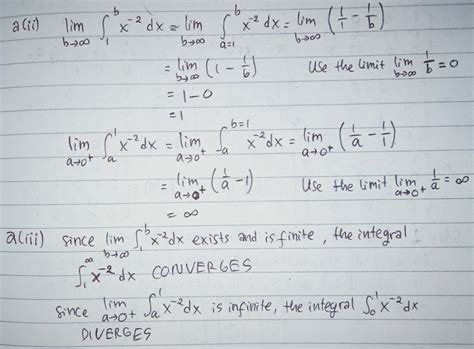 a(ii) lim b→∞ ∫₁ᵇ x⁻² dx = lim b→∞ ∫ₐ₌₁ᵇ x⁻² dx = lim b→∞ (1/1 − 1/b)
= lim b→∞ (1 − 1/b) Use the limit lim b→∞ 1/b = 0
= 1−0
= 1
lim a→0⁺ ∫ₐ¹ x⁻² dx = lim a→0⁺ ∫ₐᵇ⁼¹ x⁻² dx = lim a→0⁺ (1/a − 1/1)
= lim a→0⁺ (1/a − 1) Use the limit lim a→0⁺ 1/a = ∞
= ∞
a(iii) since lim b→∞ ∫₁ᵇ x⁻² dx exists and is finite, the integral
∫₁^∞ x⁻² dx CONVERGES
since lim a→0+ ∫ₐ¹ x⁻² dx is infinite, the integral ∫₀¹ x⁻² dx
DIVERGES